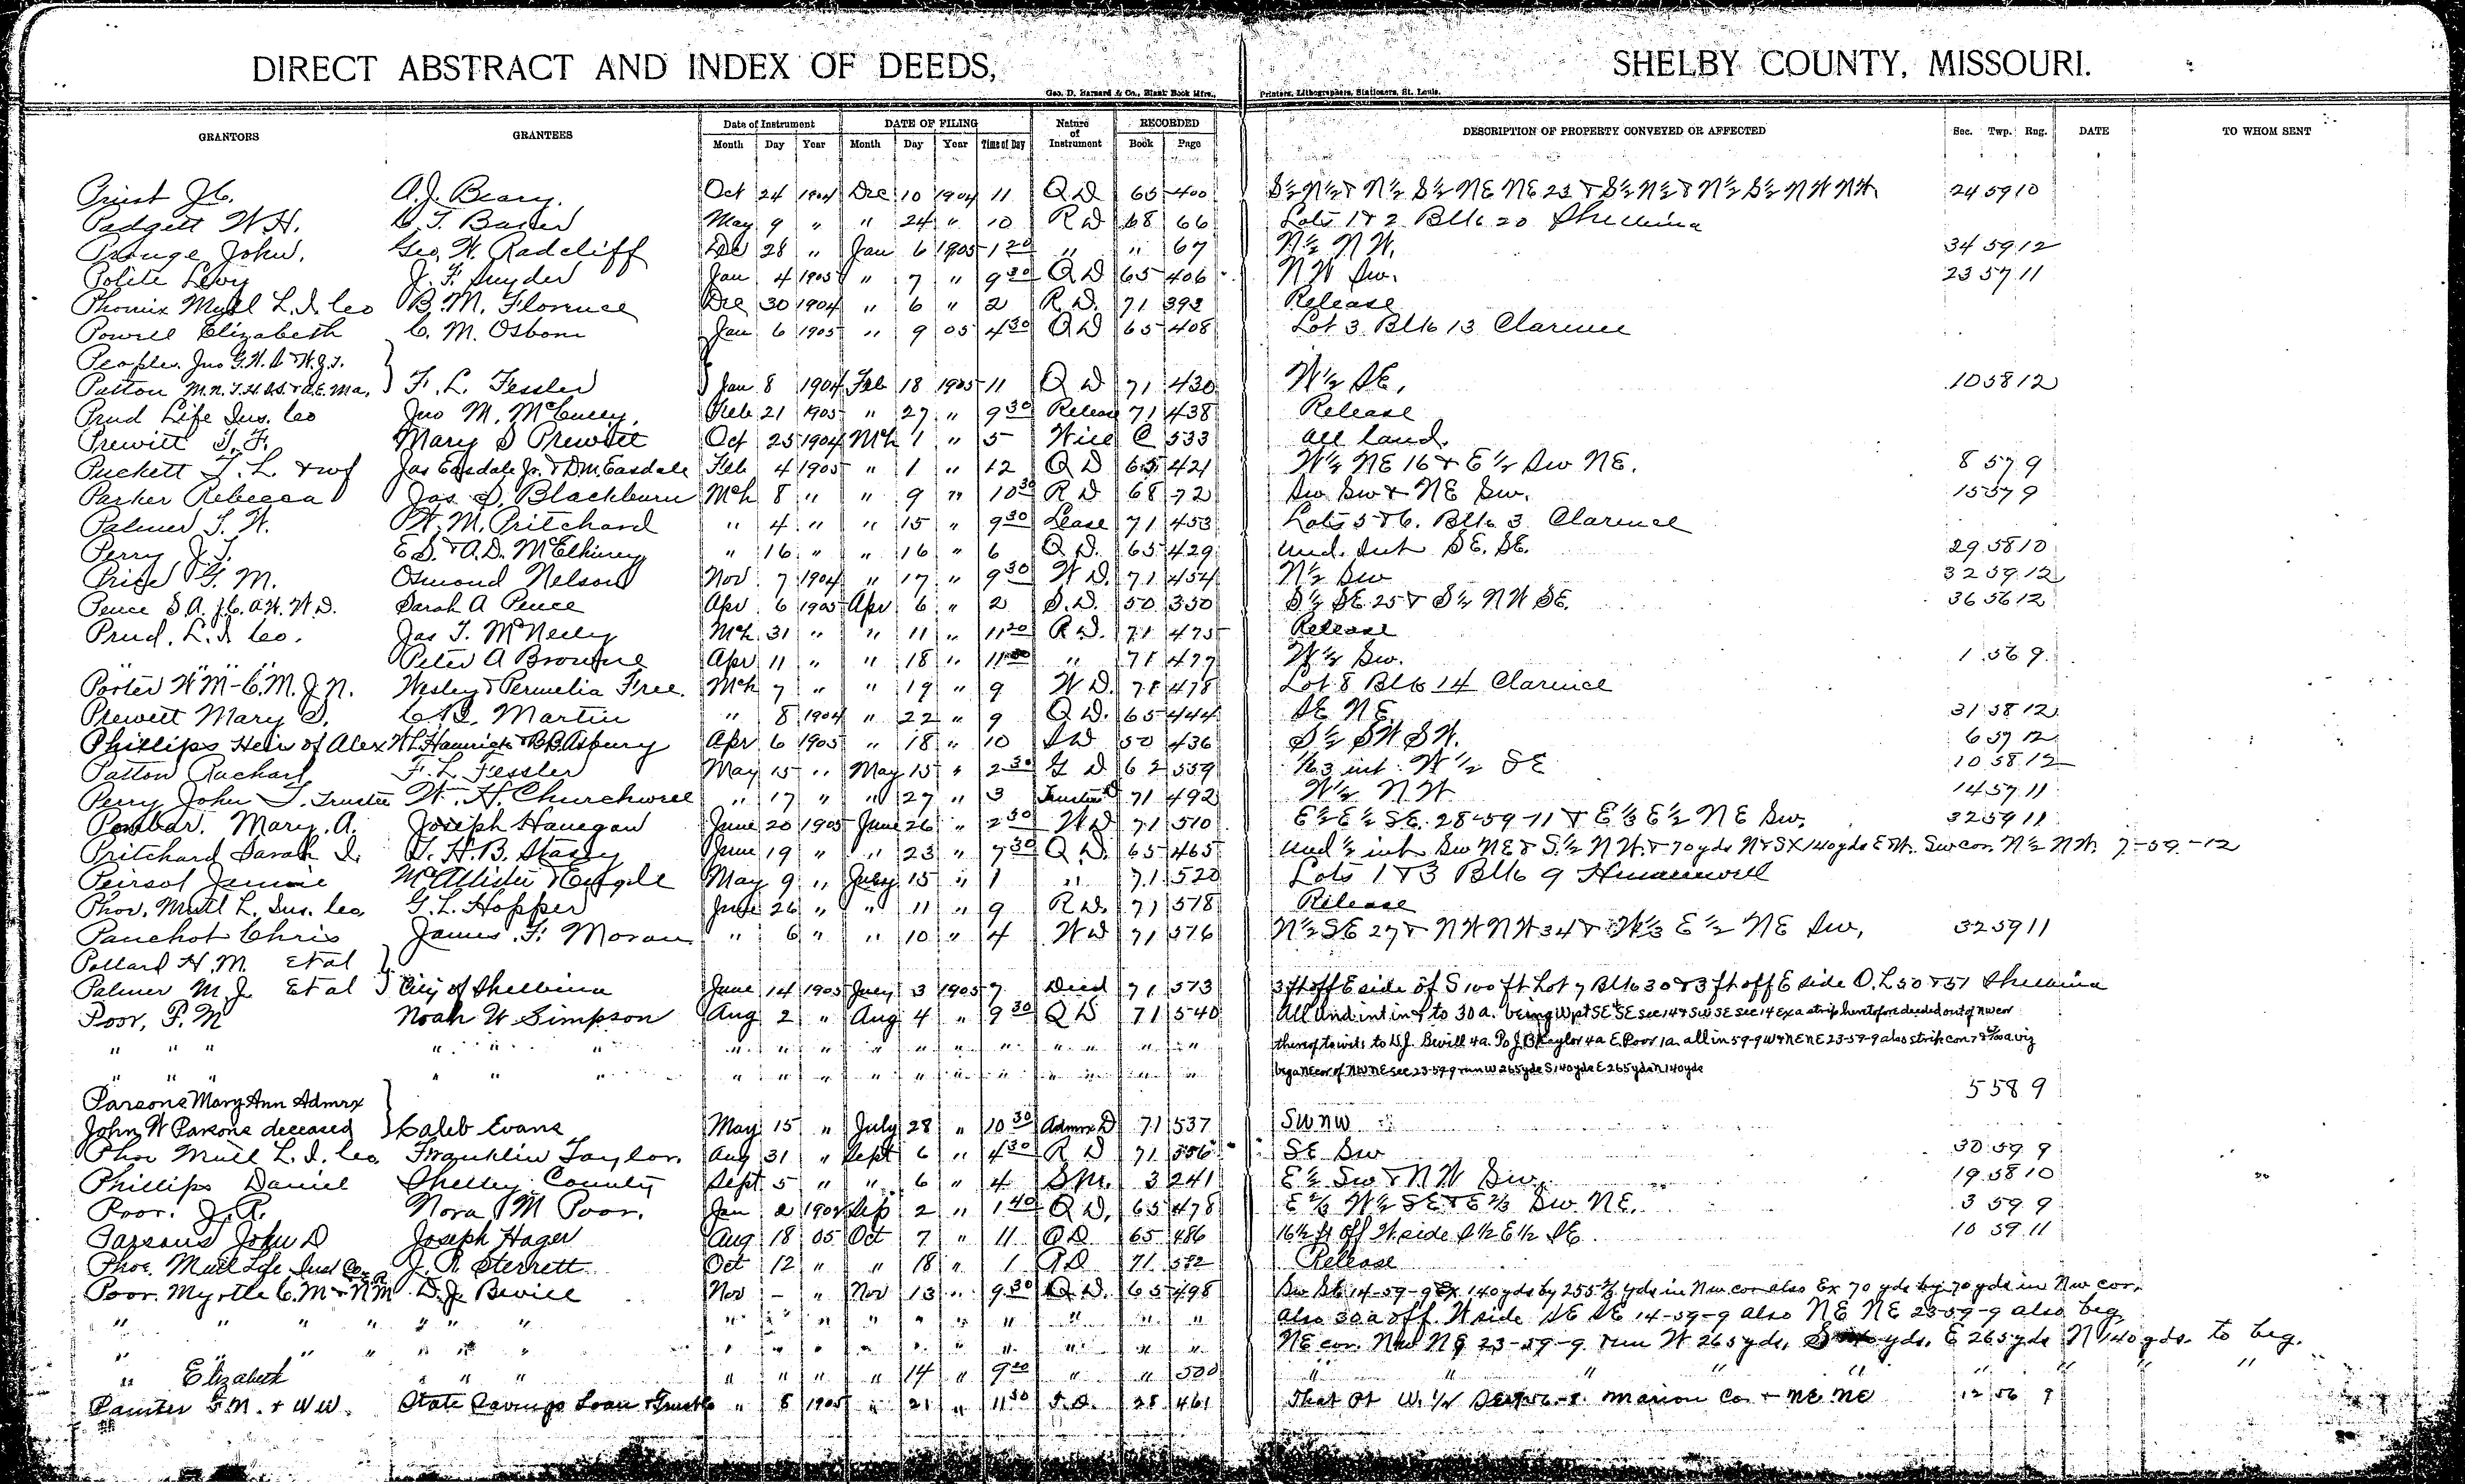 DIRECT ABSTRACT AND INDEX OF DEEDS, SHELBY COUNTY, MISSOURI.
Geo. D. Barnard & Co., Blank Book Mfrs., Printers, Lithographers, Stationers, St. Louis.
GRANTORS GRANTEES Date of Instrument DATE OF FILING Nature of Instrument RECORDED DESCRIPTION OF PROPERTY CONVEYED OR AFFECTED Sec. Twp. Rng. DATE TO WHOM SENT
Month Day Year Month Day Year Time of Day Book Page
Priest J.C. A.J. Beary. Oct 24 1904 Dec 10 1904 11 Q D 65 400 S½ N½ & N½ S½ NE NE 23 & S½ N½ & N½ S½ NW NW 24 59 10
Padgett W.H. C. T. Baker May 9 " " 24 " 10 R D 68 66 Lots 1 & 2 Blk 20 Shelbina
Prange John. Geo. W. Radcliff Dec 28 " Jan 6 1905 1 20 " " 67 N½ NW. 34 59 12
Polite Levy J. F. Snyder Jan 4 1905 " 7 " 9 30 Q D 65 406 NW Sw. 23 57 11
Phoenix Mutl L. I. Co B. M. Florence Dec 30 1904 " 6 " 2 R D. 71 392 Release
Powell Elizabeth C. M. Osborn Jan 6 1905 " 9 05 4 30 Q D 65 408 Lot 3 Blk 13 Clarence
Peoples. Jno G.W.
Patton F. L. Fessler Jan 8 1904 Feb 18 1905 11 Q D 71 430 W½ SE. 10 58 12
Prud Life Ins. Co Jno M. McCully Feb 21 1905 " 27 " 9 30 Release 71 438 Release
Prewitt T. F. Mary S Prewitt Oct 25 1904 Mch 1 " 5 Will C 533 all land.
Puckett T. L. & wf Jas Easdale Jr. & D.M. Easdale Feb 4 1905 " 1 " 12 Q D 65 421 W½ NE 16 & E½ Sw NE. 8 57 9
Parker Rebecca Jas. S. Blackburn Mch 8 " " 9 " 10 30 R D 68 72 Sw Sw & NE Sw. 15 57 9
Palmer T. W. W. M. Pritchard " 4 " " 15 " 9 30 Lease 71 453 Lots 5 & 6. Blk 3 Clarence
Perry J. T. E S. & A.D. McElhiney " 16 " " 16 " 6 Q D. 65 429 Und. Int SE. SE. 29 58 10
Price G. M. Osmond Nelson Nov 7 1904 " 17 " 9 30 W D. 71 454 N½ Sw 32 59 12
Pence S A. J.C. A.W. W.D. Sarah A Pence Apr 6 1905 Apr 6 " 2 S. D. 50 350 S½ SE 25 & S½ NW SE. 36 56 12
Prud. L. I. Co. Jas T. McNeely Mch 31 " " 11 " 11 20 R D. 71 475 Release
" " " Peter A Browne Apr 11 " " 18 " 11 30 " 71 477 W½ Sw. 1 56 9
Porter W M - C.M. J N. Wesley & Permelia Free. Mch 7 " " 19 " 9 W D. 71 478 Lot 8 Blk 14 Clarence
Prewitt Mary S. C. B. Martin " 8 1904 " 22 " 9 Q D. 65 444 SE NE. 31 58 12
Phillips Heir of Alex W L Hamrick & B.B. Asbury Apr 6 1905 " 18 " 10 S W 50 436 S½ SW SW. 6 57 12
Patton Rachael F. L. Fessler May 15 " May 15 " 2 30 G D 62 559 int. W½ SE 10 58 12
Perry John T. Trustee W. H. Churchwell " 17 " " 27 " 3 Trustee D 71 492 W½ NW 14 57 11
Penbar. Mary. A. Joseph Hanegan June 20 1905 June 26 " 2 30 W D 71 510 E½ E½ SE. 28-59-11 & E⅓ E½ NE Sw. 32 59 11
Pritchard Sarah I. T. H. B. Stacy June 19 " " 23 " 7 30 Q. D. 65 465 Und ½ int Sw NE & S½ NW. & 70 yds N&S X 140 yds E&W. Sw cor. N½ NW. 7-59-12
Peirsol Jennie McAllister & Engle May 9 " July 15 " 1 " 71 520 Lots 1 & 3 Blk 9 Hunnewell
Phox. Mutl L. Ins. Co. G. L. Hopper June 26 " " 11 " 9 R D. 71 578 Release
Panchot Chris James. F. Moran " 6 " " 10 " 4 W D 71 576 N½ SE 27 & NW NW 34 & W⅓ E½ NE Sw. 32 59 11
Pollard H. M. Et al
Palmer M. J. Et al City of Shelbina June 14 1905 July 3 1905 7 Deed 71 573 3 ft off E side of S 100 ft Lot 7 Blk 30 & 3 ft off E side O.L 50 & 51 Shelbina
Poor, P. M Noah W Simpson Aug 2 " Aug 4 " 9 30 Q D 71 540 All Und int in & to 30 a. being W pt SE SE sec 14 & SW SE sec 14 Ex a strip heretofore deeded out of nw cor
" " " " " " " " " " " " " " " " thereof towit: to D.J. Bevill 4a. To J B Kaylor 4 a E. Poor 1a. all in 59-9 W & NE NE 23-59-9 also strip con 7 a viz
" " " " " " " " " " " " " " " " beg a NE cor of NW NE sec 23-59-9 run W 265 yds S 140 yds E 265 yds N 140 yds
5 58 9
Parsons Mary Ann Admrx
John W Parsons deceased Caleb Evans May 15 " July 28 " 10 30 Admrx D 71 537 SW NW
Phox Mutl L. I. Co. Franklin Taylor. Aug 31 " Sept 6 " 4 30 R D 71 556 SE Sw 30 59 9
Phillips Daniel Shelby County Sept 5 " " 6 " 4 S M. 3 241 E½ Sw & NW Sw. 19 58 10
Poor. J. R. Nora M Poor. Jan 2 Sep 2 " 1 40 Q D. 65 478 E⅔ W½ SE & E⅔ Sw NE. 3 59 9
Parsons John D Joseph Hager Aug 18 05 Oct 7 " 11 Q D 65 486 16½ ft off W side S½ E½ SE. 10 59 11
Phox. Mutl Life Ins Co J. R. Sterrett Oct 12 " " 18 " 1 R D 71 592 Release
Poor. Myrtle C. M & N M D. J. Bevill Nov - " Nov 13 " 9 30 Q D. 65 498 Sw SE 14-59-9 Ex 140 yds by 255⅔ yds in Nw cor also Ex 70 yds by 70 yds in Nw cor.
" " " " " " " " " " " " " " " " also 30 a off W side SE SE 14-59-9 also NE NE 23-59-9 also beg
" " " " " " " " " " " " " " " " NE cor. Nw NE 23-59-9 run W 265 yds, S yds. E 265 yds N 140 yds. to beg.
" Elizabeth " " " " " " " 14 " 9 20 " " 500 " " " " " " "
Painter F.M. & W W. State Savings Loan & Trust Co " 8 1905 " 21 " 11 30 T. D. 28 461 That Pt W. ½ Marion Co. & NE NE 12 56 9